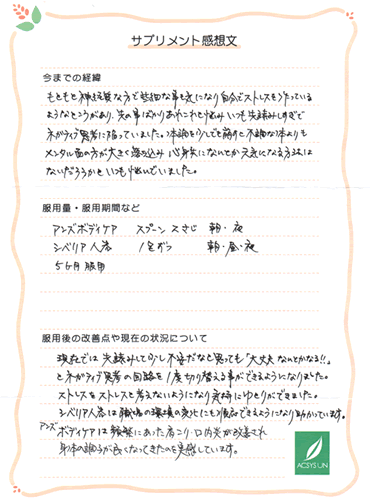 サプリメント感想文
今までの経緯
もともと神経質な方で些細な事も気になり自分でストレスをつくっている
ようなところがあり、先の事ばかりあれこれと悩み いつも先読みしすぎて
ネガティブ思考に陥っていました。体調を少しでも崩すと不調な体よりも
メンタル面の方が大きく落ち込み 心身共になんとか元気になる方法は
ないだろうかといつも悩んでいました。
服用量・服用期間など
アンズボディケア スプーン 2さじ 朝・夜
シベリア人参 1包ずつ 朝・昼・夜
5ヶ月 服用
服用後の改善点や現在の状況について
現在では 先読みして少し不安だなと思っても「大丈夫 なんとかなる!!」
とネガティブ思考の回路を1度切り替える事ができるようになりました。
ストレスをストレスと考えないようになり 気持ちにゆとりができました。
シベリア人参は職場の環境の変化にも順応できるようになり助かっています。
アンズ
ボディケアは頻繁にあった肩こり・口内炎が改善され
身体の調子が良くなってきたのを実感しています。
ACSYSUN